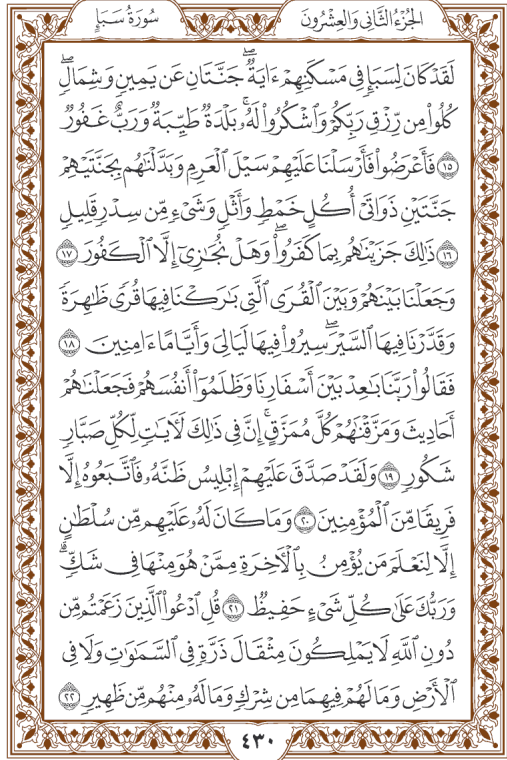 سُورَةُ سَبَإٍ
الجُزْءُ الثَّانِي وَالعِشْرُونَ
لَقَدْ كَانَ لِسَبَإٖ فِي مَسْكَنِهِمْ ءَايَةٞۖ جَنَّتَانِ عَن يَمِينٖ وَشِمَالٖۖ
كُلُواْ مِن رِّزْقِ رَبِّكُمْ وَٱشْكُرُواْ لَهُۥۚ بَلْدَةٞ طَيِّبَةٞ وَرَبٌّ غَفُورٞ
١٥ فَأَعْرَضُواْ فَأَرْسَلْنَا عَلَيْهِمْ سَيْلَ ٱلْعَرِمِ وَبَدَّلْنَٰهُم بِجَنَّتَيْهِمْ
جَنَّتَيْنِ ذَوَاتَيْ أُكُلٍ خَمْطٖ وَأَثْلٖ وَشَيْءٖ مِّن سِدْرٖ قَلِيلٖ
١٦ ذَٰلِكَ جَزَيْنَٰهُم بِمَا كَفَرُواْۖ وَهَلْ نُجَٰزِيٓ إِلَّا ٱلْكَفُورَ ١٧
وَجَعَلْنَا بَيْنَهُمْ وَبَيْنَ ٱلْقُرَى ٱلَّتِي بَٰرَكْنَا فِيهَا قُرٗى ظَٰهِرَةٗ
وَقَدَّرْنَا فِيهَا ٱلسَّيْرَۖ سِيرُواْ فِيهَا لَيَالِيَ وَأَيَّامًا ءَامِنِينَ ١٨
فَقَالُواْ رَبَّنَا بَٰعِدْ بَيْنَ أَسْفَارِنَا وَظَلَمُوٓاْ أَنفُسَهُمْ فَجَعَلْنَٰهُمْ
أَحَادِيثَ وَمَزَّقْنَٰهُمْ كُلَّ مُمَزَّقٍۚ إِنَّ فِي ذَٰلِكَ لَأٓيَٰتٖ لِّكُلِّ صَبَّارٖ
شَكُورٖ ١٩ وَلَقَدْ صَدَّقَ عَلَيْهِمْ إِبْلِيسُ ظَنَّهُۥ فَٱتَّبَعُوهُ إِلَّا
فَرِيقٗا مِّنَ ٱلْمُؤْمِنِينَ ٢٠ وَمَا كَانَ لَهُۥ عَلَيْهِم مِّن سُلْطَٰنٍ
إِلَّا لِنَعْلَمَ مَن يُؤْمِنُ بِٱلْأٓخِرَةِ مِمَّنْ هُوَ مِنْهَا فِي شَكّٖۗ
وَرَبُّكَ عَلَىٰ كُلِّ شَيْءٍ حَفِيظٞ ٢١ قُلِ ٱدْعُواْ ٱلَّذِينَ زَعَمْتُم مِّن
دُونِ ٱللَّهِ لَا يَمْلِكُونَ مِثْقَالَ ذَرَّةٖ فِي ٱلسَّمَٰوَٰتِ وَلَا فِي
ٱلْأَرْضِ وَمَا لَهُمْ فِيهِمَا مِن شِرْكٖ وَمَا لَهُۥ مِنْهُم مِّن ظَهِيرٖ ٢٢
٤٣٠